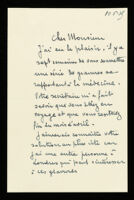 Cher Monsieur
J'ai eu le plaisir, il y a
sept semaines de vous soumettre
une série de gravures se
rapportant à la médecine.
Votre secrétaire m'a fait
savoir que vous étiez en
voyage et que vous rentrez
fin du mois d'avril.
J'aimerais connaître votre
solution au plus vite car
j'ai une autre personne à
Londres qui peut s'intéresser
à ces gravures